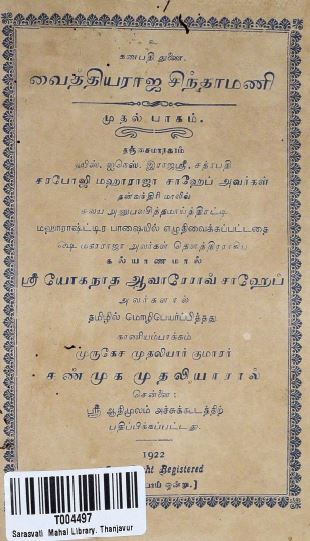 உ
கணபதி துணை.
வைத்தியராஜ சிந்தாமணி
முதல் பாகம்.
தஞ்சைமாநகரம்
ஹிஸ், ஐனெஸ், இராஜஸ்ரீ, சத்ரபதி
சரபோஜி மஹாராஜா சாஹேப் அவர்கள்
தன்வந்திரி மாலில்
மஹாராஷ்ட்டிர பாஷையில் எழுதிவைக்கப்பட்டதை
ஷை மகாராஜா அவர்கள் தௌத்திரராகிய
கல்யாணமால்
ஸ்ரீ யோகநாத ஆவாரேராவ் சாஹேப்
அவர்களால்
தமிழில் மொழிபெயர்ப்பித்தது.
காணியம்பாக்கம்
முருகேச முதலியார் குமாரர்
சண்முக முதலியாரால்
சென்னை:
ஸ்ரீ ஆதிமூலம் அச்சுக்கூடத்திற்
பதிப்பிக்கப்பட்டது.
1922
Registered
ஒன்று.]
T004497
Sarasvati Mahal Library, Thanjavur